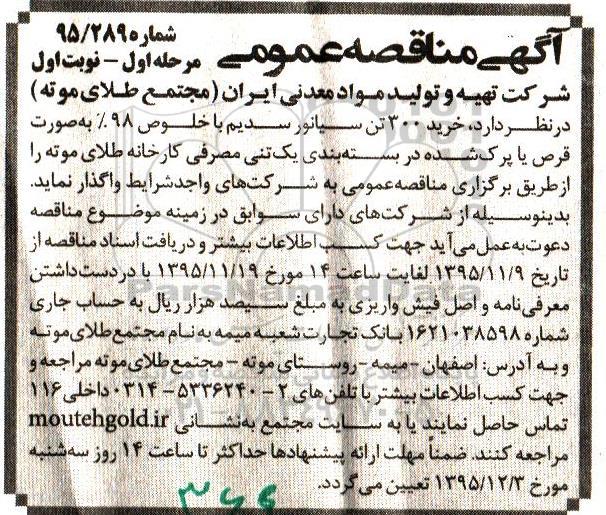 آگهی مناقصه عمومی
شماره ۹۵/۲۸۹
مرحله اول - نوبت اول
شرکت تهیه و تولید مواد معدنی ایران (مجتمع طلای موته)
درنظر دارد، خرید ۳۰۰ تن سیانور سدیم با خلوص ۹۸٪ به‌صورت
قرص یا پرک شده در بسته‌بندی یک‌تنی مصرفی کارخانه طلای موته را
ازطریق برگزاری مناقصه عمومی به شرکت‌های واجدشرایط واگذار نماید.
بدینوسیله از شرکت‌های دارای سوابق در زمینه موضوع مناقصه
دعوت به‌عمل می‌آید جهت کسب اطلاعات بیشتر و دریافت اسناد مناقصه از
تاریخ ۱۳۹۵/۱۱/۹ لغایت ساعت ۱۴ مورخ ۱۳۹۵/۱۱/۱۹ با دردست‌داشتن
معرفی‌نامه و اصل فیش واریزی به مبلغ سیصد هزار ریال به حساب جاری
شماره ۱۶۲۱۰۳۸۵۹۸ بانک تجارت شعبه میمه به‌نام مجتمع طلای موته
و به آدرس: اصفهان - میمه - روستای موته - مجتمع طلای موته مراجعه و
جهت کسب اطلاعات بیشتر با تلفن‌های ۲ - ۵۳۳۶۲۴۰ - ۰۳۱۴ داخلی ۱۱۶
تماس حاصل نمایند یا به سایت مجتمع به‌نشانی moutehgold.ir
مراجعه کنند. ضمناً مهلت ارائه پیشنهادها حداکثر تا ساعت ۱۴ روز سه‌شنبه
مورخ ۱۳۹۵/۱۲/۳ تعیین می‌گردد.
ParsNamadData